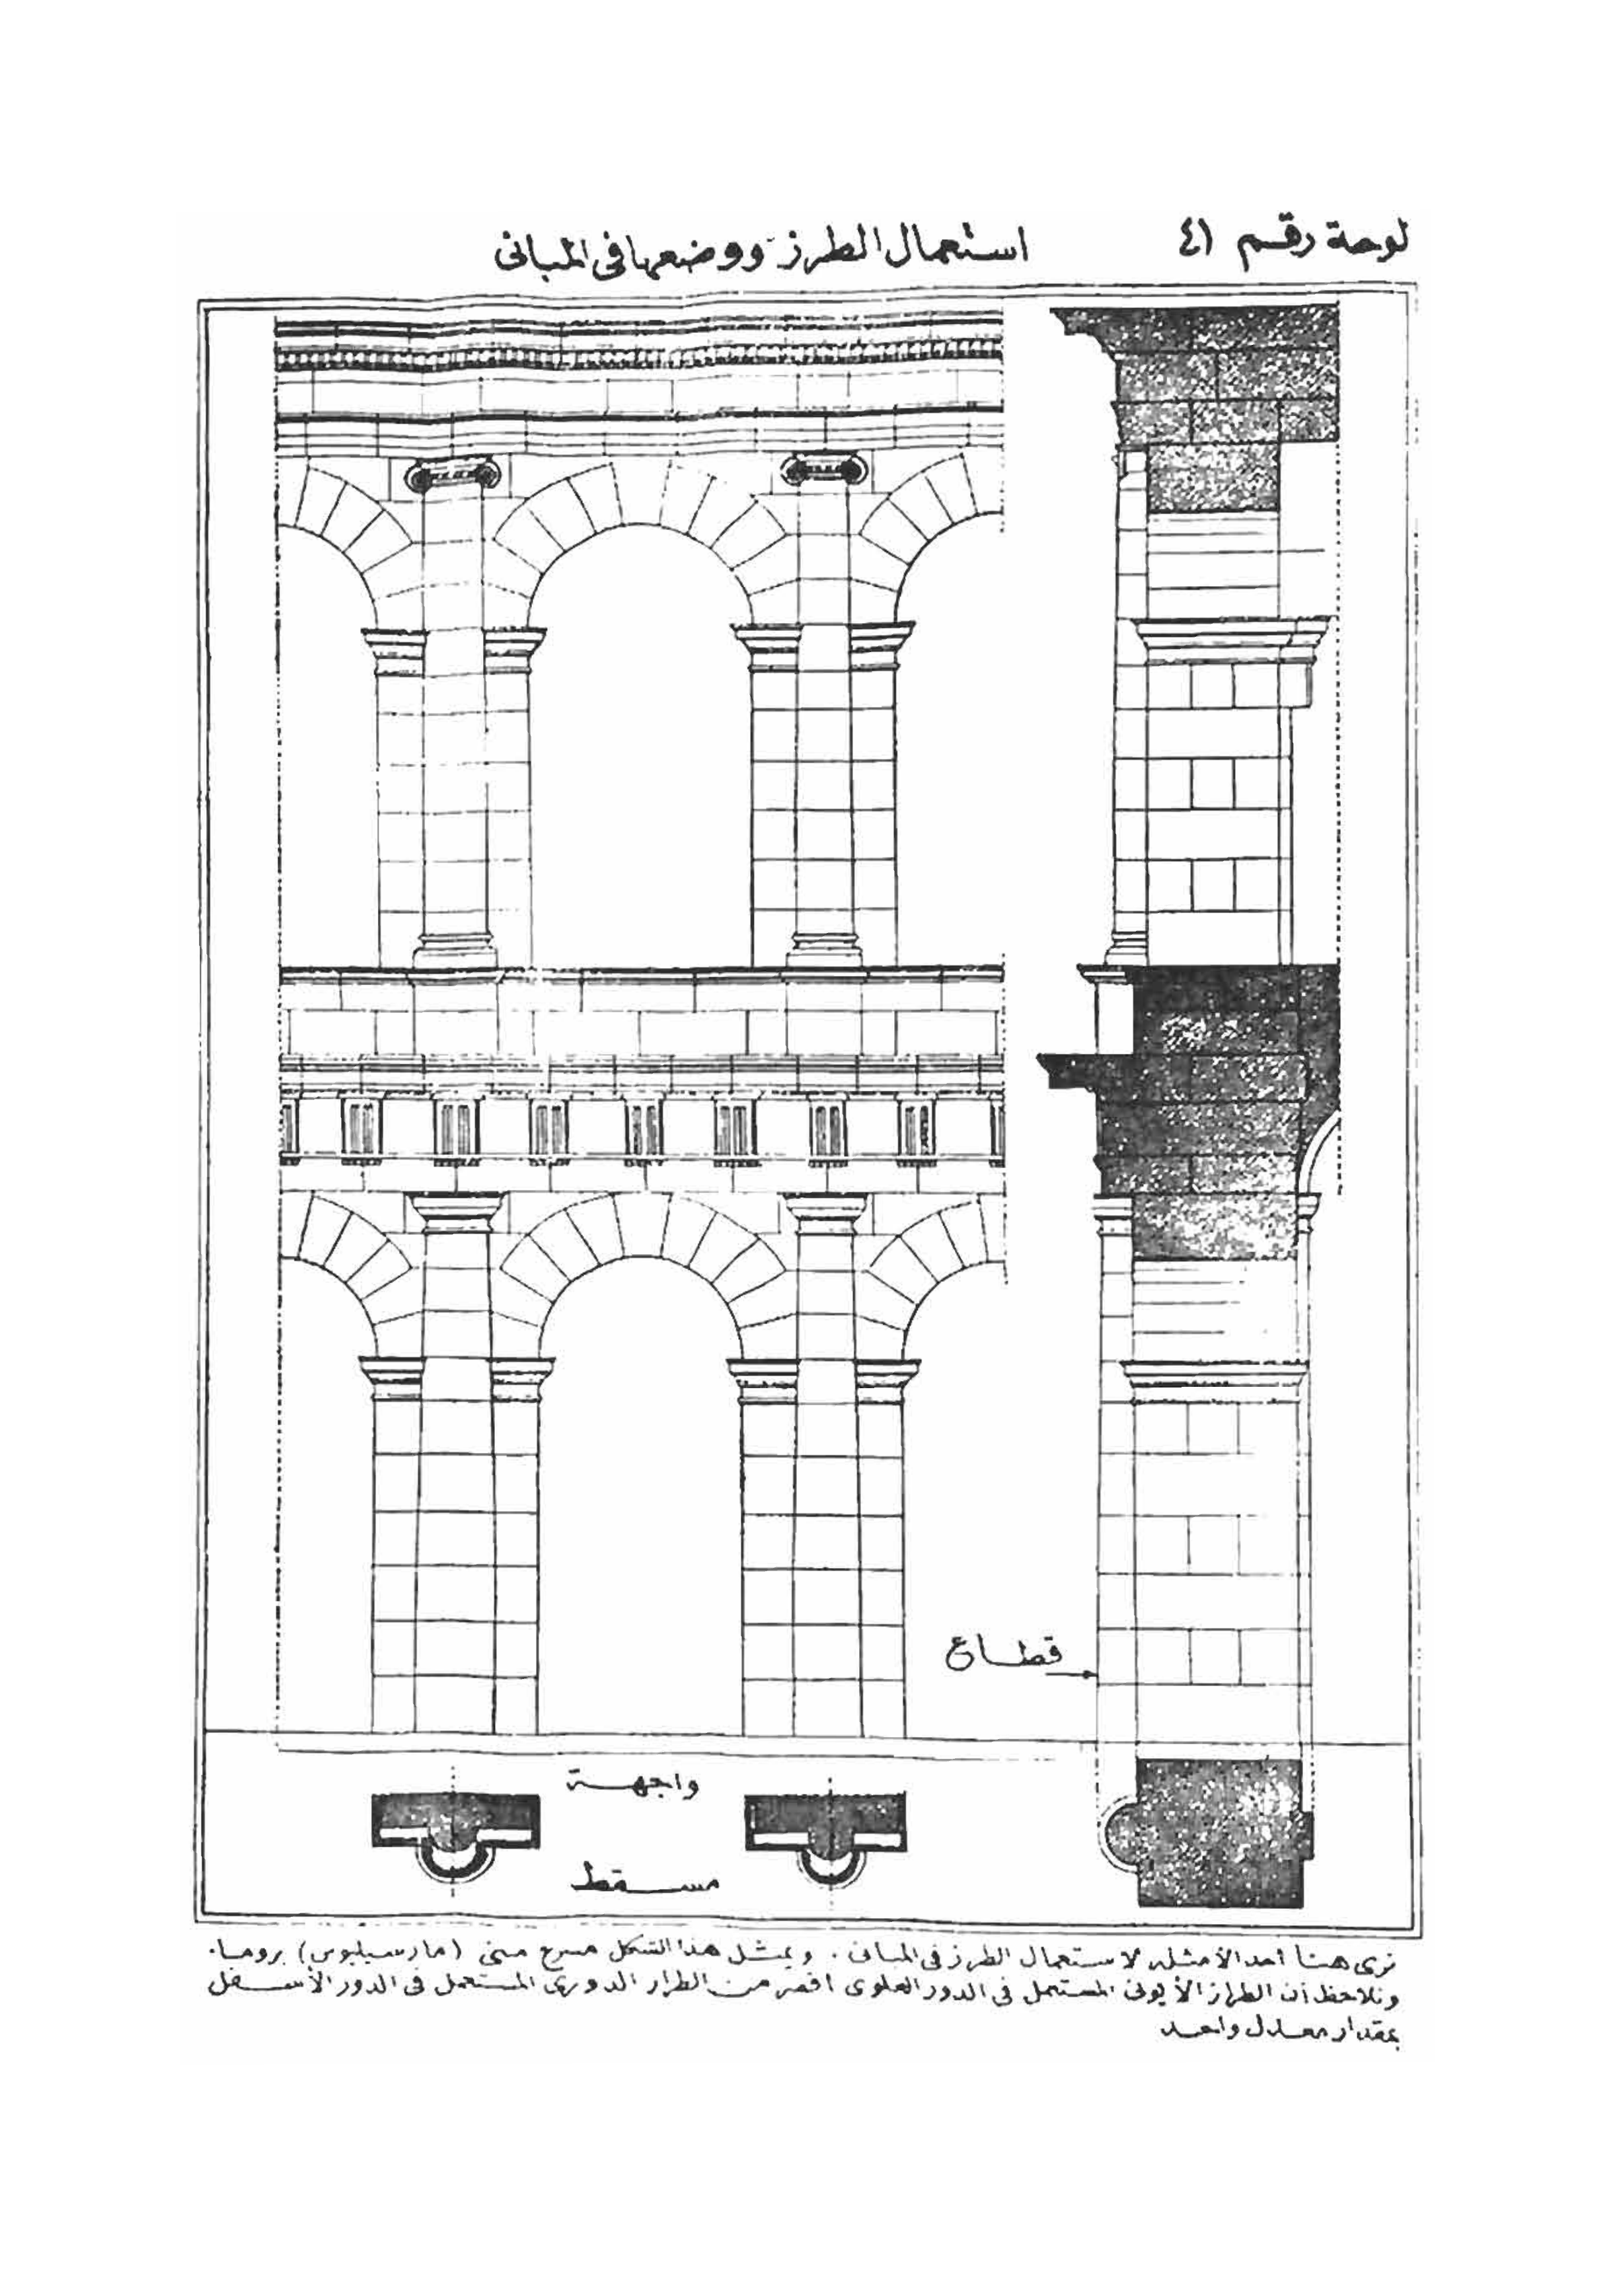 لوحة رقم ٤١
استعمال الطرز ووضعها فى المبانى
قطاع
واجهة
مسقط
نرى هنا أحد الأمثلة لاستعمال الطرز فى المبانى . ويمثل هذا الشكل مسرح مبنى (مارسيليوس) بروما .
ونلاحظ أن الطراز الأيونى المستعمل فى الدور العلوى أقصر من الطراز الدورى المستعمل فى الدور الأسفل
بمقدار معدل واحد